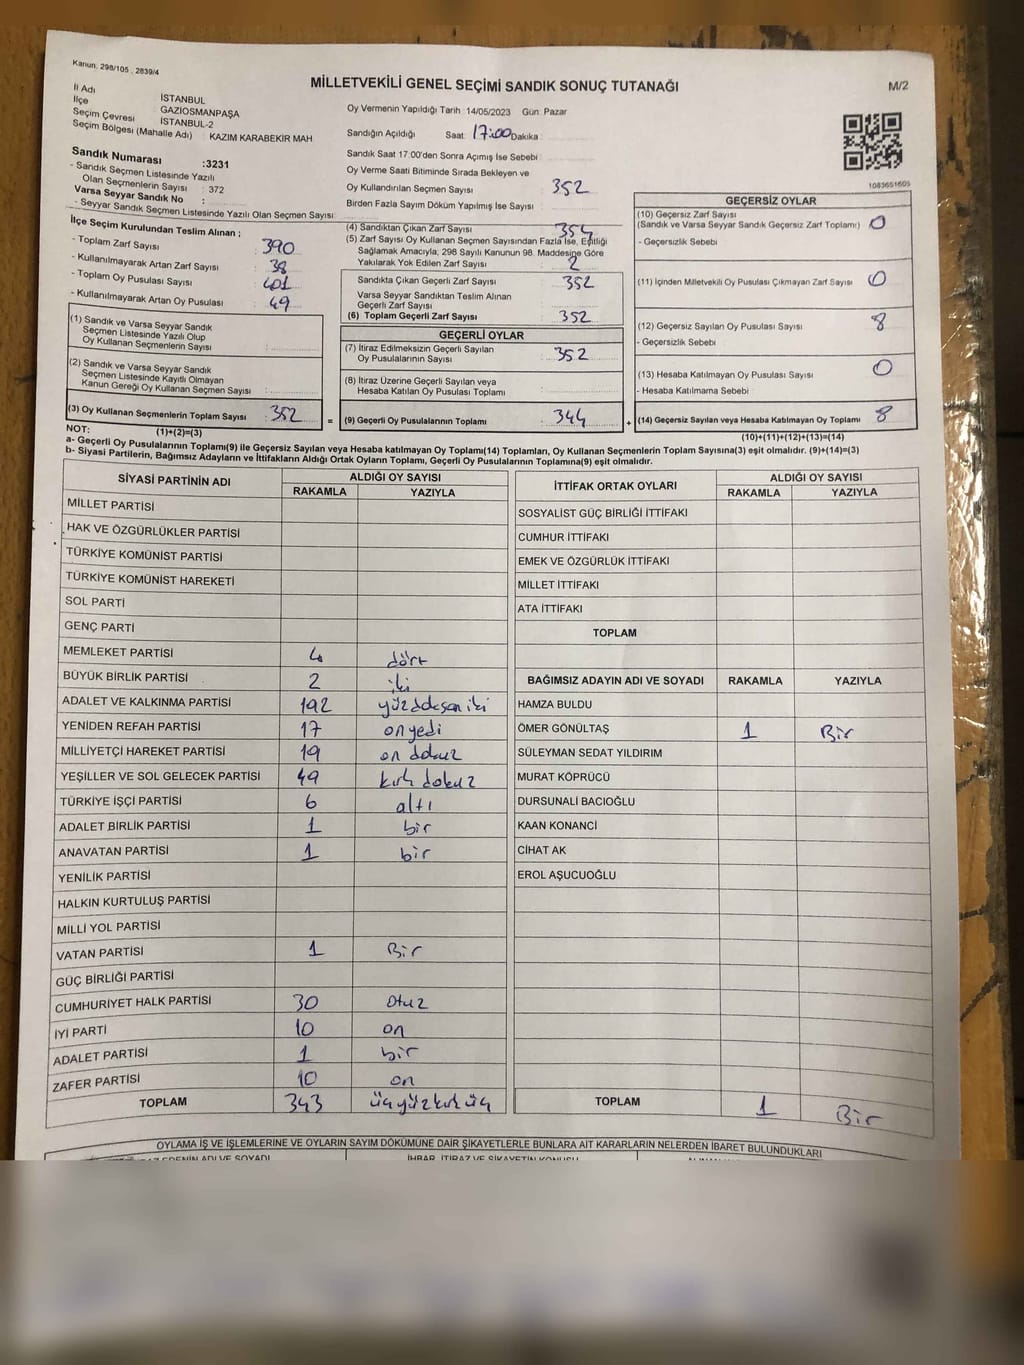 Kanun: 298/105 , 2839/4
MİLLETVEKİLİ GENEL SEÇİMİ SANDIK SONUÇ TUTANAĞI
M/2
İl Adı İSTANBUL
İlçe GAZİOSMANPAŞA
Seçim Çevresi İSTANBUL-2
Seçim Bölgesi (Mahalle Adı) : KAZIM KARABEKİR MAH
Oy Vermenin Yapıldığı Tarih : 14/05/2023 Gün: Pazar
Sandığın Açıldığı Saat 17:00 Dakika
Sandık Saat 17:00'den Sonra Açımış İse Sebebi
Oy Verme Saati Bitiminde Sırada Bekleyen ve
Oy Kullandırılan Seçmen Sayısı : 352
Birden Fazla Sayım Döküm Yapılmış İse Sayısı
1083651605
Sandık Numarası :3231
- Sandık Seçmen Listesinde Yazılı
Olan Seçmenlerin Sayısı : 372
Varsa Seyyar Sandık No :
- Seyyar Sandık Seçmen Listesinde Yazılı Olan Seçmen Sayısı
İlçe Seçim Kurulundan Teslim Alınan ;
- Toplam Zarf Sayısı : 390
- Kullanılmayarak Artan Zarf Sayısı : 38
- Toplam Oy Pusulası Sayısı : 401
- Kullanılmayarak Artan Oy Pusulası : 49
(1) Sandık ve Varsa Seyyar Sandık
Seçmen Listesinde Yazılı Olup
Oy Kullanan Seçmenlerin Sayısı :
(2) Sandık ve Varsa Seyyar Sandık
Seçmen Listesinde Kayıtlı Olmayan
Kanun Gereği Oy Kullanan Seçmen Sayısı :
(3) Oy Kullanan Seçmenlerin Toplam Sayısı : 352
(4) Sandıktan Çıkan Zarf Sayısı : 354
(5) Zarf Sayısı Oy Kullanan Seçmen Sayısından Fazla İse, Eşitliği
Sağlamak Amacıyla; 298 Sayılı Kanunun 98. Maddesine Göre
Yakılarak Yok Edilen Zarf Sayısı : 2
Sandıkta Çıkan Geçerli Zarf Sayısı : 352
Varsa Seyyar Sandıktan Teslim Alınan
Geçerli Zarf Sayısı
(6) Toplam Geçerli Zarf Sayısı : 352
GEÇERLİ OYLAR
(7) İtiraz Edilmeksizin Geçerli Sayılan
Oy Pusulalarının Sayısı : 352
(8) İtiraz Üzerine Geçerli Sayılan veya
Hesaba Katılan Oy Pusulası Toplamı :
= (9) Geçerli Oy Pusulalarının Toplamı : 344
GEÇERSİZ OYLAR
(10) Geçersiz Zarf Sayısı
(Sandık ve Varsa Seyyar Sandık Geçersiz Zarf Toplamı) : 0
- Geçersizlik Sebebi
(11) İçinden Milletvekili Oy Pusulası Çıkmayan Zarf Sayısı : 0
(12) Geçersiz Sayılan Oy Pusulası Sayısı : 8
- Geçersizlik Sebebi
(13) Hesaba Katılmayan Oy Pusulası Sayısı : 0
- Hesaba Katılmama Sebebi
+ (14) Geçersiz Sayılan veya Hesaba Katılmayan Oy Toplamı : 8
NOT: (1)+(2)=(3)
(10)+(11)+(12)+(13)=(14)
a- Geçerli Oy Pusulalarının Toplamı(9) ile Geçersiz Sayılan veya Hesaba katılmayan Oy Toplamı(14) Toplamları, Oy Kullanan Seçmenlerin Toplam Sayısına(3) eşit olmalıdır. (9)+(14)=(3)
b- Siyasi Partilerin, Bağımsız Adayların ve İttifakların Aldığı Ortak Oyların Toplamı, Geçerli Oy Pusulalarının Toplamına(9) eşit olmalıdır.
SİYASİ PARTİNİN ADI ALDIĞI OY SAYISI
RAKAMLA YAZIYLA
MİLLET PARTİSİ
HAK VE ÖZGÜRLÜKLER PARTİSİ
TÜRKİYE KOMÜNİST PARTİSİ
TÜRKİYE KOMÜNİST HAREKETİ
SOL PARTİ
GENÇ PARTİ
MEMLEKET PARTİSİ 4 dört
BÜYÜK BİRLİK PARTİSİ 2 iki
ADALET VE KALKINMA PARTİSİ 192 yüzdoksan iki
YENİDEN REFAH PARTİSİ 17 on yedi
MİLLİYETÇİ HAREKET PARTİSİ 19 on dokuz
YEŞİLLER VE SOL GELECEK PARTİSİ 49 kırk dokuz
TÜRKİYE İŞÇİ PARTİSİ 6 altı
ADALET BİRLİK PARTİSİ 1 bir
ANAVATAN PARTİSİ 1 bir
YENİLİK PARTİSİ
HALKIN KURTULUŞ PARTİSİ
MİLLİ YOL PARTİSİ
VATAN PARTİSİ 1 Bir
GÜÇ BİRLİĞİ PARTİSİ
CUMHURİYET HALK PARTİSİ 30 Otuz
İYİ PARTİ 10 on
ADALET PARTİSİ 1 bir
ZAFER PARTİSİ 10 on
TOPLAM 343 üçyüzkırk üç
İTTİFAK ORTAK OYLARI ALDIĞI OY SAYISI
RAKAMLA YAZIYLA
SOSYALİST GÜÇ BİRLİĞİ İTTİFAKI
CUMHUR İTTİFAKI
EMEK VE ÖZGÜRLÜK İTTİFAKI
MİLLET İTTİFAKI
ATA İTTİFAKI
TOPLAM
BAĞIMSIZ ADAYIN ADI VE SOYADI RAKAMLA YAZIYLA
HAMZA BULDU
ÖMER GÖNÜLTAŞ 1 Bir
SÜLEYMAN SEDAT YILDIRIM
MURAT KÖPRÜCÜ
DURSUNALİ BACIOĞLU
KAAN KONANCİ
CİHAT AK
EROL AŞUCUOĞLU
TOPLAM 1 Bir
OYLAMA İŞ VE İŞLEMLERİNE VE OYLARIN SAYIM DÖKÜMÜNE DAİR ŞİKAYETLERLE BUNLARA AİT KARARLARIN NELERDEN İBARET BULUNDUKLARI